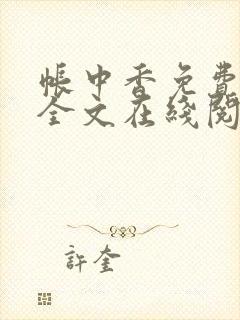 帳中香免費
全文在綫閱
許奎